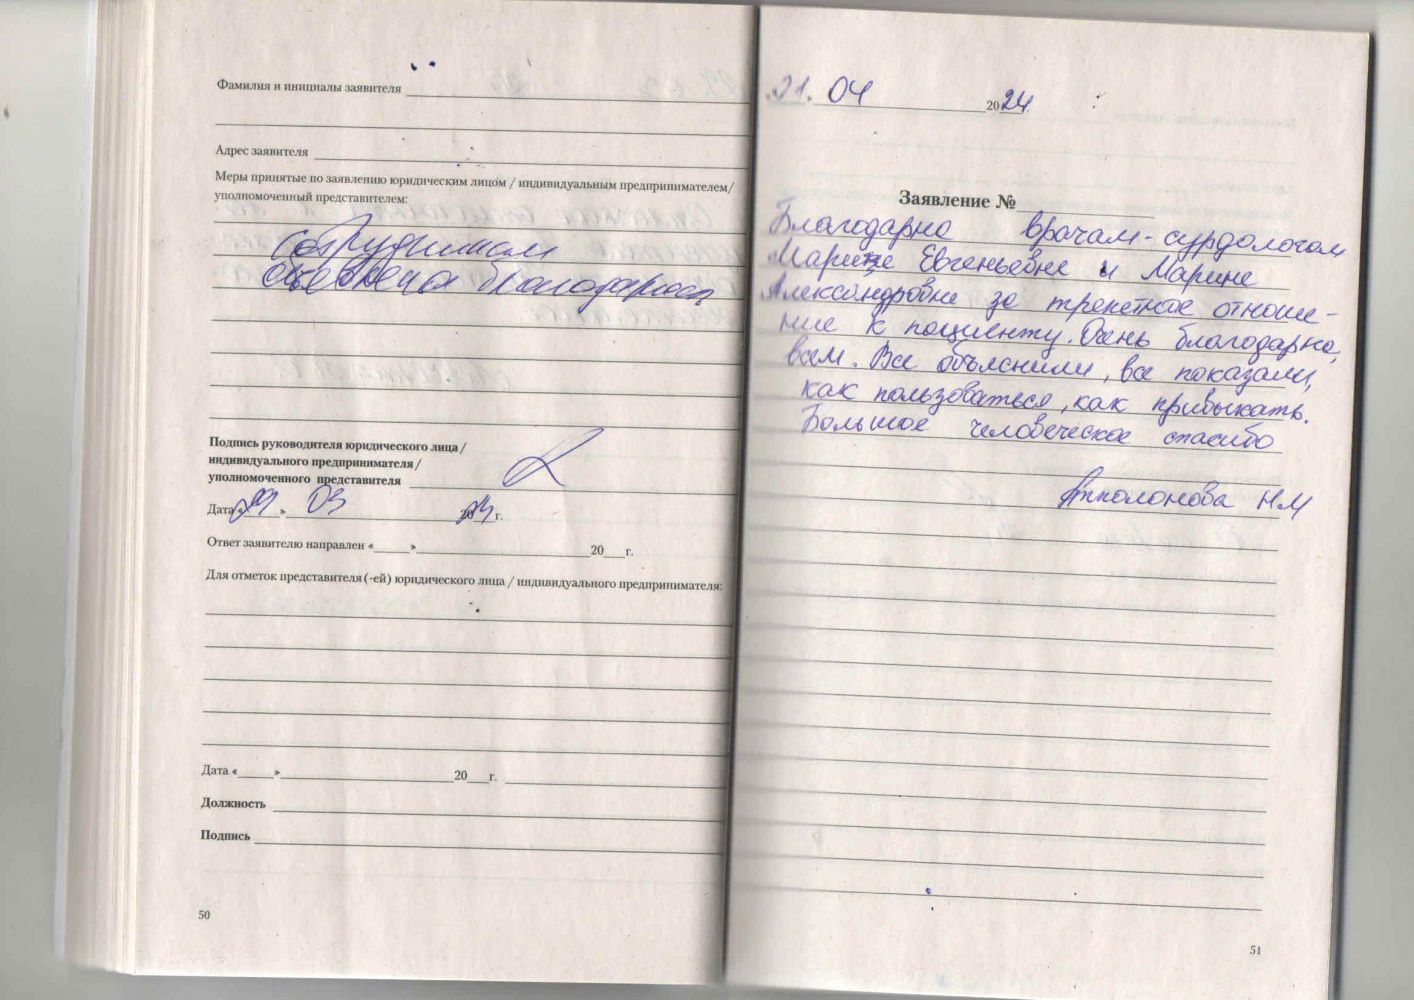 Фамилия и инициалы заявителя
Адрес заявителя
Меры принятые по заявлению юридическим лицом / индивидуальным предпринимателем/
уполномоченный представителем:
Сотрудникам
объявлена благодарность
Подпись руководителя юридического лица /
индивидуального предпринимателя /
уполномоченного представителя
Дата « 29 » 03 2024 г.
Ответ заявителю направлен « » 20 г.
Для отметок представителя (-ей) юридического лица / индивидуального предпринимателя:
Дата « » 20 г.
Должность
Подпись
50
21. 04 2024
Заявление №
Благодарна врачам-сурдологам
Марине Евгеньевне и Марине
Александровне за трепетное отноше-
ние к пациенту. Очень благодарна
всем. Все объяснили, все показали,
как пользоваться, как привыкать.
Большое человеческое спасибо
Апполонова Н.М
51